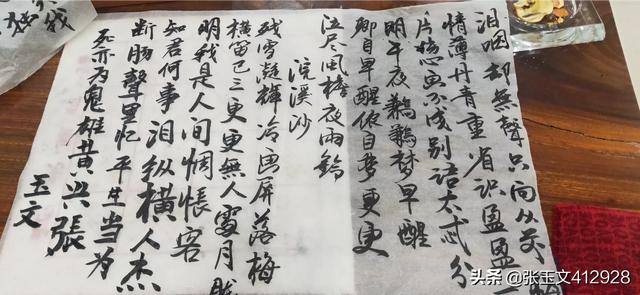 泪咽却無聲只向从前
情薄丹青重省识盈盈一
片傷心画不成别语太忒分
明午夜鶼鶼梦早醒
卿自早醒侬自梦更更
泣尽风檐夜雨鈴
浣溪沙
残雪凝辉冷画屏落梅
横笛已三更更無人處月胧
明我是人间惆怅客
知君何事泪纵横人杰
断肠聲里忆平生当为
死亦为鬼雄黄兴張
玉文
我
头条 @张玉文412928